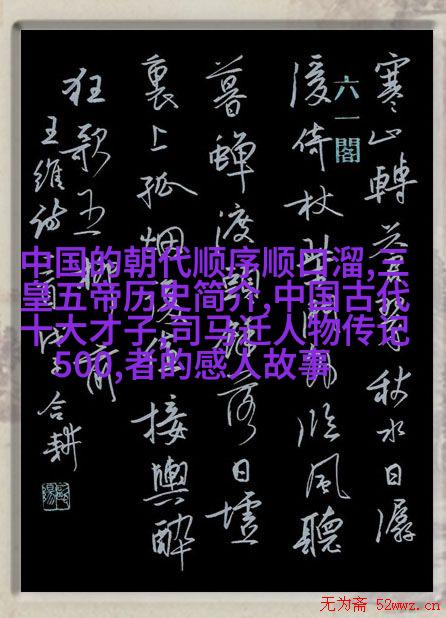 寒山轉蒼翠秋水日潺
湲倚杖柴門外臨風聽
暮蟬渡頭餘落日墟
裏上孤烟復值接輿醉
狂歌五柳前
王維詩合耕
六一閣
中国的朝代顺序顺口溜,三
皇五帝历史简介,中国古代
十大才子,司马迁人物传记
500,者的感人故事
无为斋 52wwz.cn